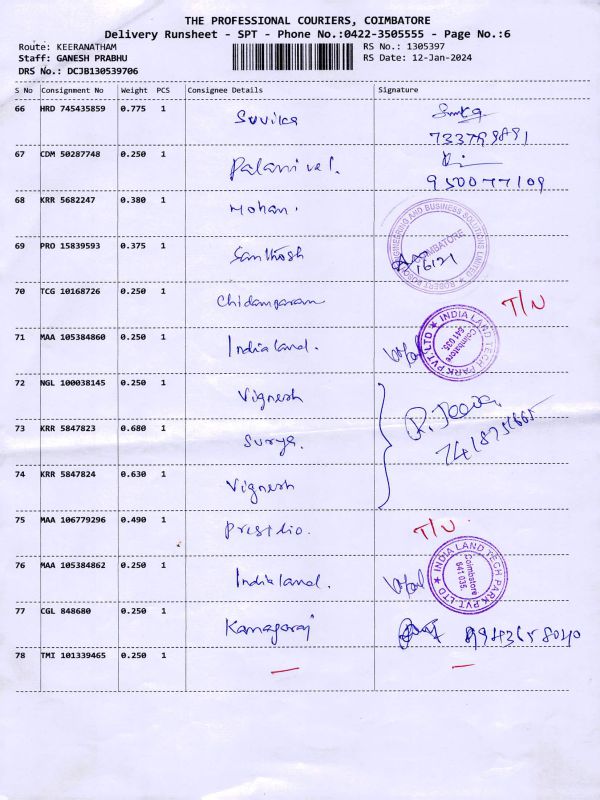 THE PROFESSIONAL COURIERS, COIMBATORE
Delivery Runsheet - SPT - Phone No.:0422-3505555 - Page No.:6
Route: KEERANATHAM RS No.: 1305397
Staff: GANESH PRABHU RS Date: 12-Jan-2024
DRS No.: DCJB130539706
S No Consignment No Weight PCS Consignee Details Signature
66 HRD 745435859 0.775 1 Suvika
67 CDM 50287748 0.250 1 Palanivel.
950077109
68 KRR 5682247 0.380 1 Mohan.
69 PRO 15839593 0.375 1 Santhosh 16121
70 TCG 10168726 0.250 1 Chidamparam T/N
71 MAA 105384860 0.250 1 Indialand. INDIA LAND TECH PARK PVT. LTD Coimbatore 641 035.
72 NGL 100038145 0.250 1 Vignesh
73 KRR 5847823 0.680 1 Surya. R. Jeeva
74 KRR 5847824 0.630 1 Vignesh
75 MAA 106779296 0.490 1 Prestlio. T/N
76 MAA 105384862 0.250 1 Indialand. INDIA LAND TECH PARK PVT. LTD Coimbatore 641 035.
77 CGL 848680 0.250 1 Kanagaraj
78 TMI 101339465 0.250 1 — —